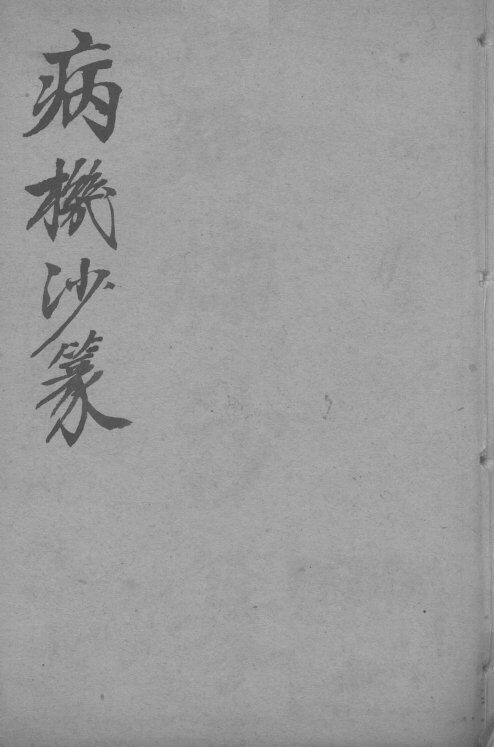 病機沙篆